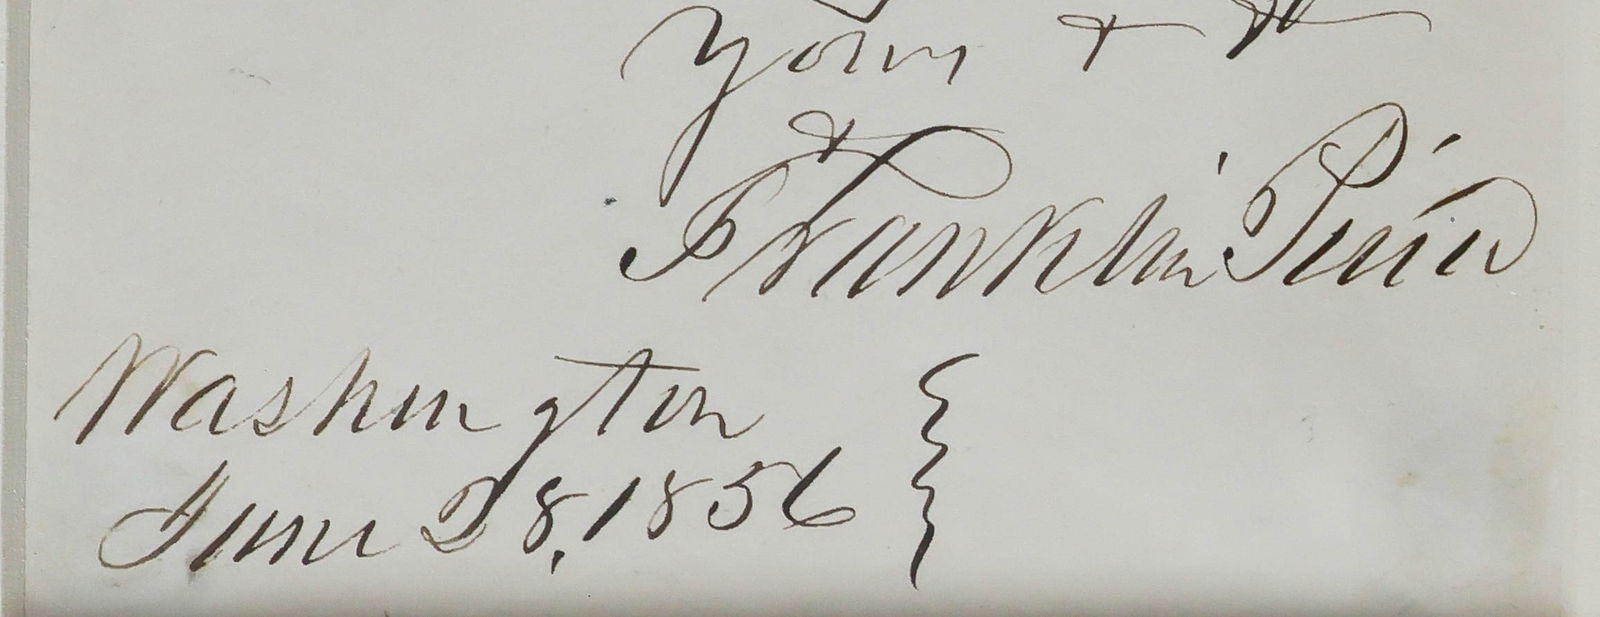 Yours &
Franklin Pierce
Washington
June 28, 1856